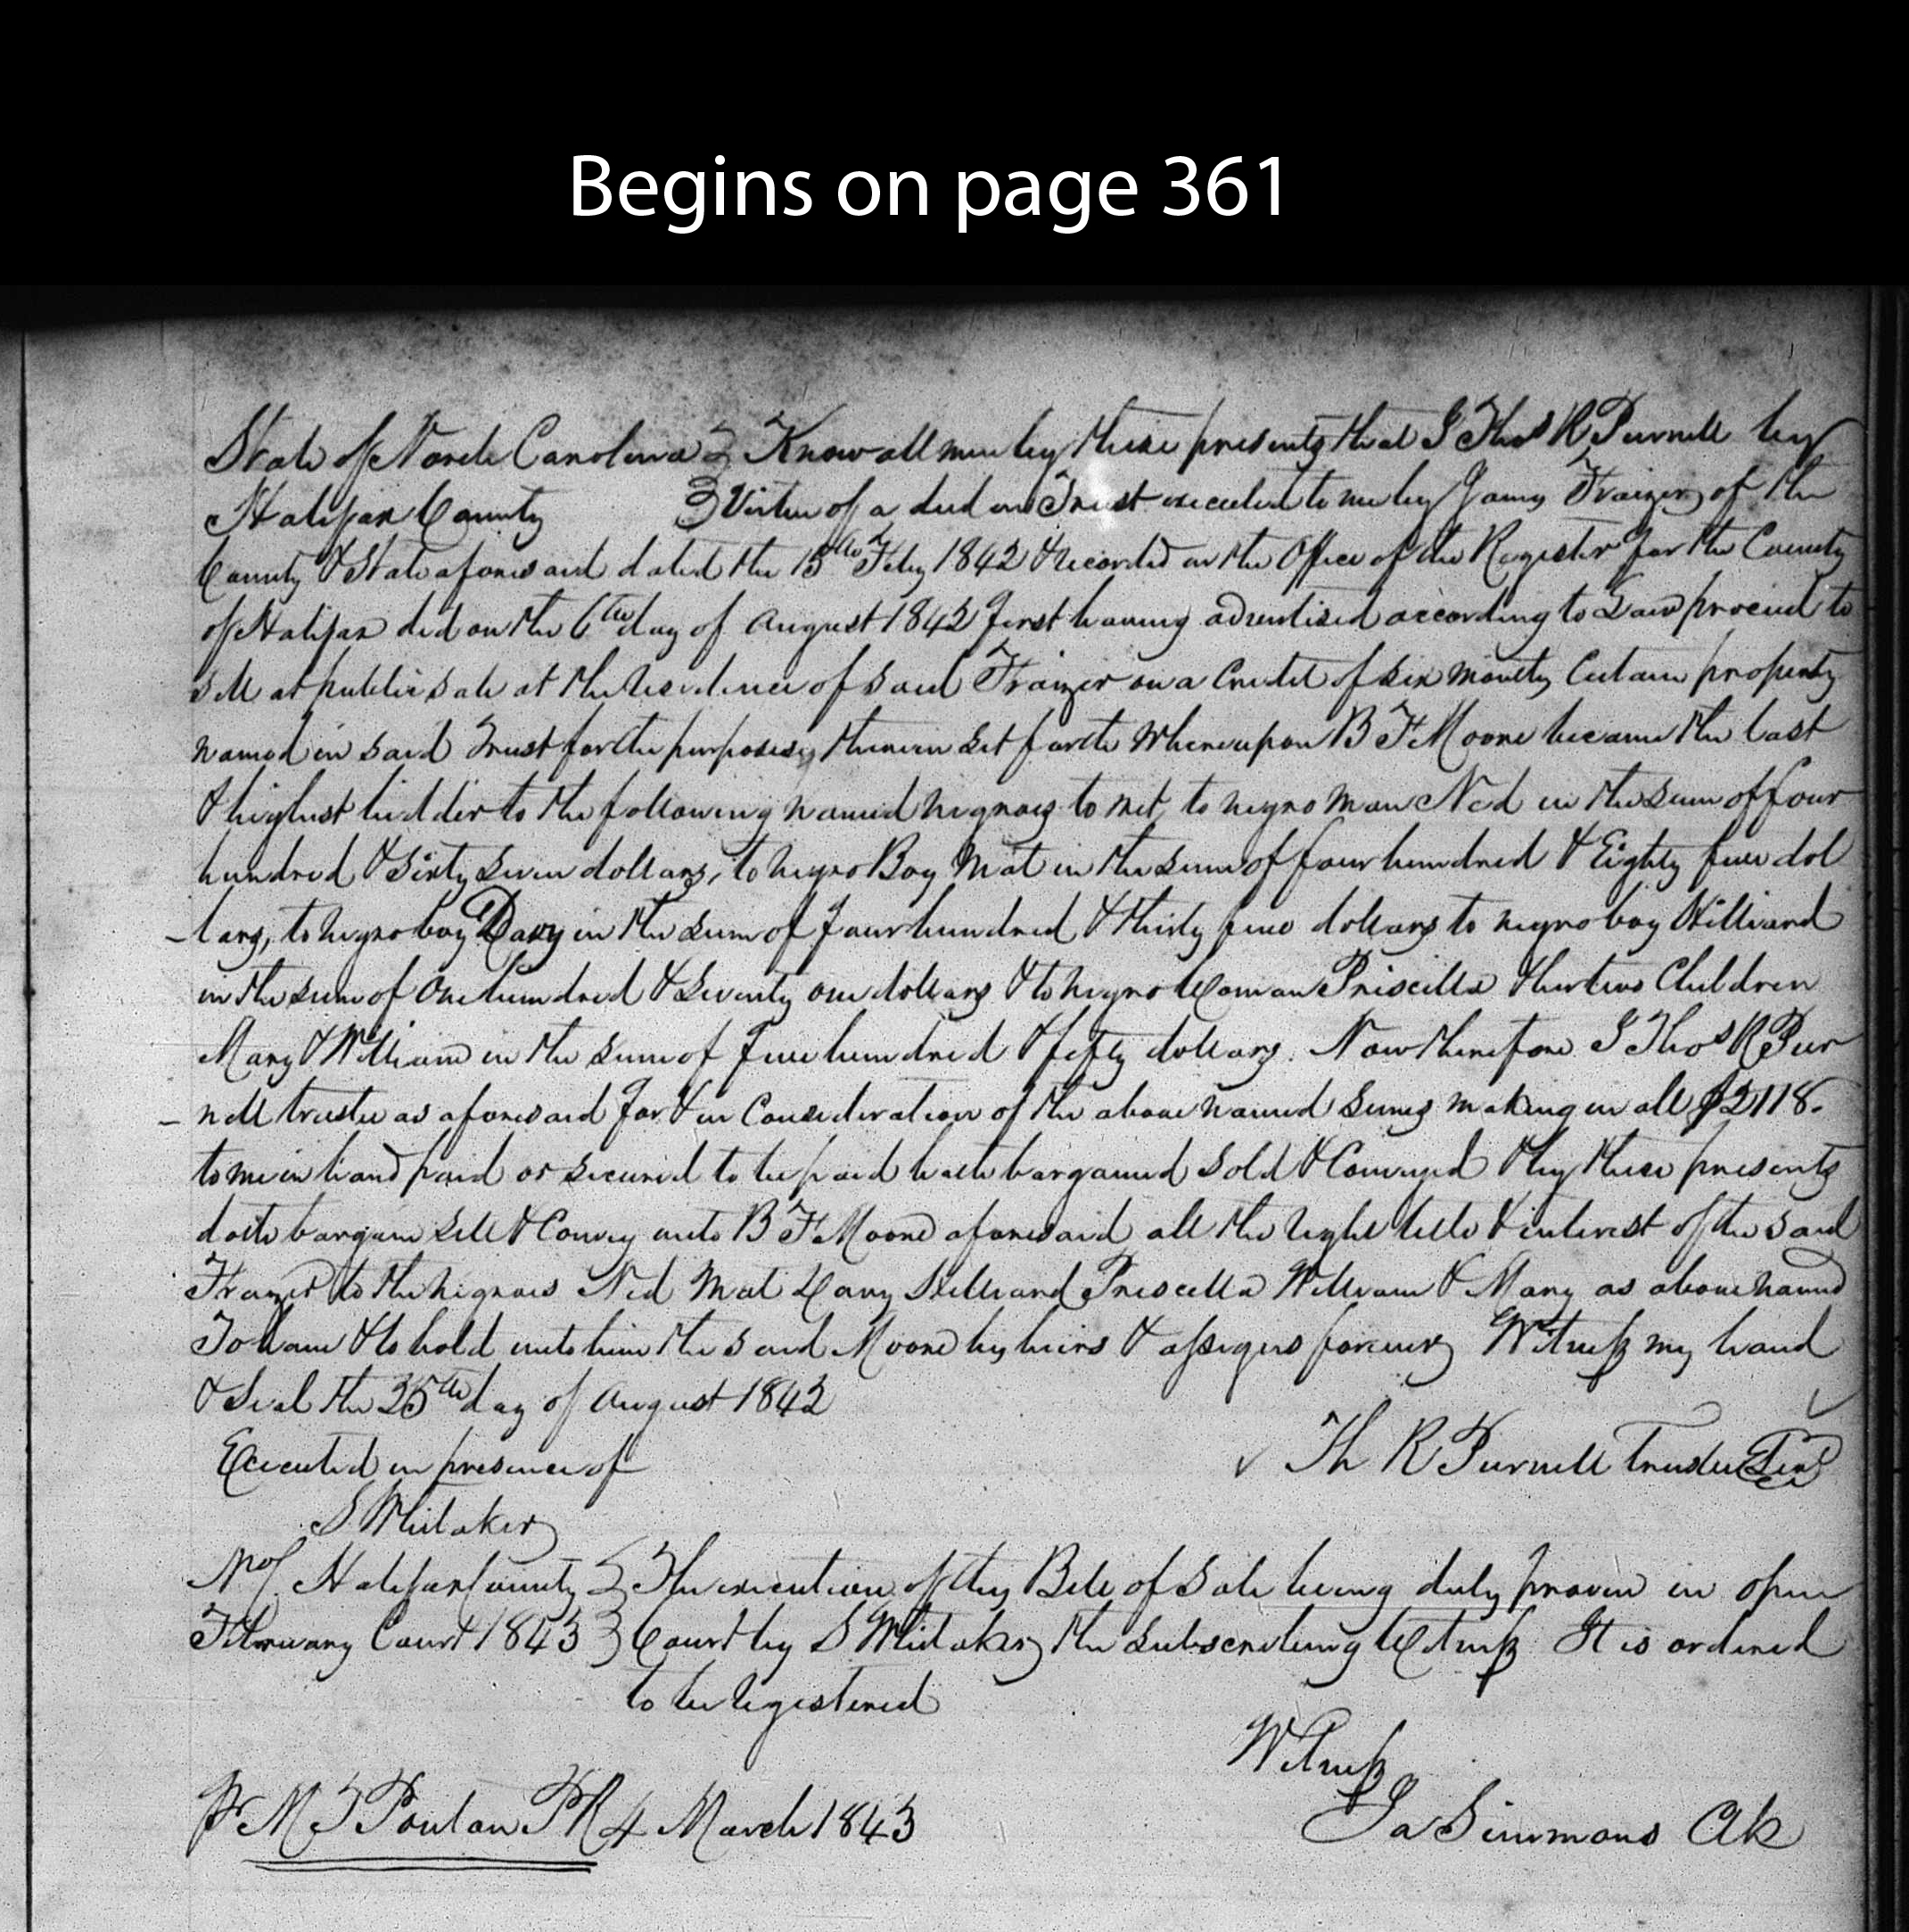 Begins on page 361
State of North Carolina } Know all men by these presents that I Thos R Purnell by
Halifax County } Virtue of a deed in Trust executed to me by James Frazier of the
County & State aforesaid dated the 15th Feby 1842 & recorded in the Office of the Register for the County
of Halifax did on the 6th day of August 1842 first having advertised according to Law proceed to
sell at public sale at the residence of said Frazier on a Credit of six months Certain property
named in said Trust for the purposes therein set forth Whereupon B F Moore became the last
& highest bidder to the following named negroes to wit, to negro man Ned in the sum of four
hundred & sixty seven dollars, to negro Boy Mat in the sum of four hundred & Eighty five dol
-lars, to negro boy Davy in the sum of four hundred & thirty five dollars to negro boy Hilliard
in the sum of One hundred & seventy one dollars & to negro Woman Priscilla & her two Children
Mary & William in the sum of five hundred & fifty dollars. Now therefore I Thos R Pur
- nell trustee as aforesaid for & in Consideration of the above named sums making in all $2118.
to me in hand paid or secured to be paid hath bargained Sold & Conveyed & by these presents
doth bargain sell & Convey unto B F Moore aforesaid all the right title & interest of the said
Frazier to the negroes Ned Mat Davy Hilliard Priscilla William & Mary as above named
To have & to hold unto him the said Moore his heirs & assigns forever Witness my hand
& seal the 25th day of August 1842
Executed in presence of Th R Purnell Trustee Seal
S Whitaker
Halifax County } The execution of this Bill of Sale being duly proven in open
February Court 1843 } Court by S Whitaker the subscribing Witness It is ordered
to be registered
Witness
Pr M T Ponton PR 4 March 1843 Ja Simmons Clk